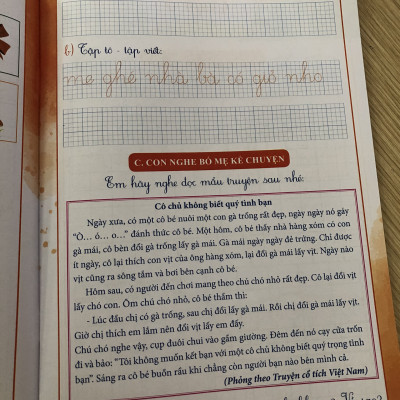 b) Tập tô - tập viết:
mẹ ghé nhà bà có giỏ nho
C. CON NGHE BỐ MẸ KỂ CHUYỆN
Em hãy nghe đọc mẩu truyện sau nhé:
Cô chủ không biết quý tình bạn
Ngày xưa, có một cô bé nuôi một con gà trống rất đẹp, ngày ngày nó gáy
"Ò... ó... o..." đánh thức cô bé. Một hôm, cô bé thấy nhà hàng xóm có con
gà mái, cô bèn đổi gà trống lấy gà mái. Gà mái ngày ngày đẻ trứng. Chỉ được
ít ngày, cô lại thích con vịt của ông hàng xóm, lại đổi gà mái lấy vịt. Ngày nào
vịt cũng ra sông tắm và bơi bên cạnh cô bé.
Hôm sau, có người đến chơi mang theo chú chó nhỏ rất đẹp. Cô lại đổi vịt
lấy chó con. Ôm chú chó nhỏ, cô bé thầm thì:
- Lúc đầu chị có gà trống, sau chị đổi lấy gà mái. Rồi chị đổi gà mái lấy vịt.
Giờ chị thích em lắm nên đổi vịt lấy em đấy.
Chú chó nghe vậy, cụp đuôi chui vào gầm giường. Đêm đến nó cạy cửa trốn
đi và bảo: "Tôi không muốn kết bạn với một cô chủ không biết quý trọng tình
bạn". Sáng ra cô bé buồn rầu khi chẳng còn người bạn nào bên mình cả.
(Phỏng theo Truyện cổ tích Việt Nam)